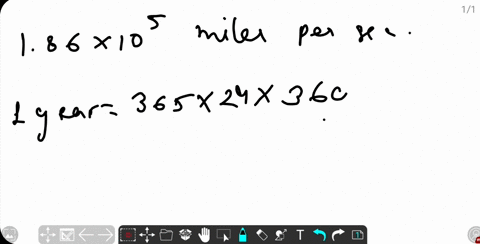 1/1
1.86 × 10⁵ miles per sec.
1 year = 365 × 24 × 360